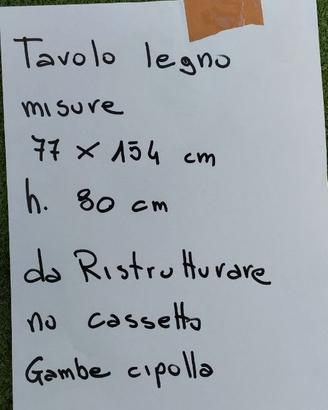 Tavolo legno
misure
77 × 154 cm
h. 80 cm
da Ristrutturare
no cassetto
Gambe cipolla